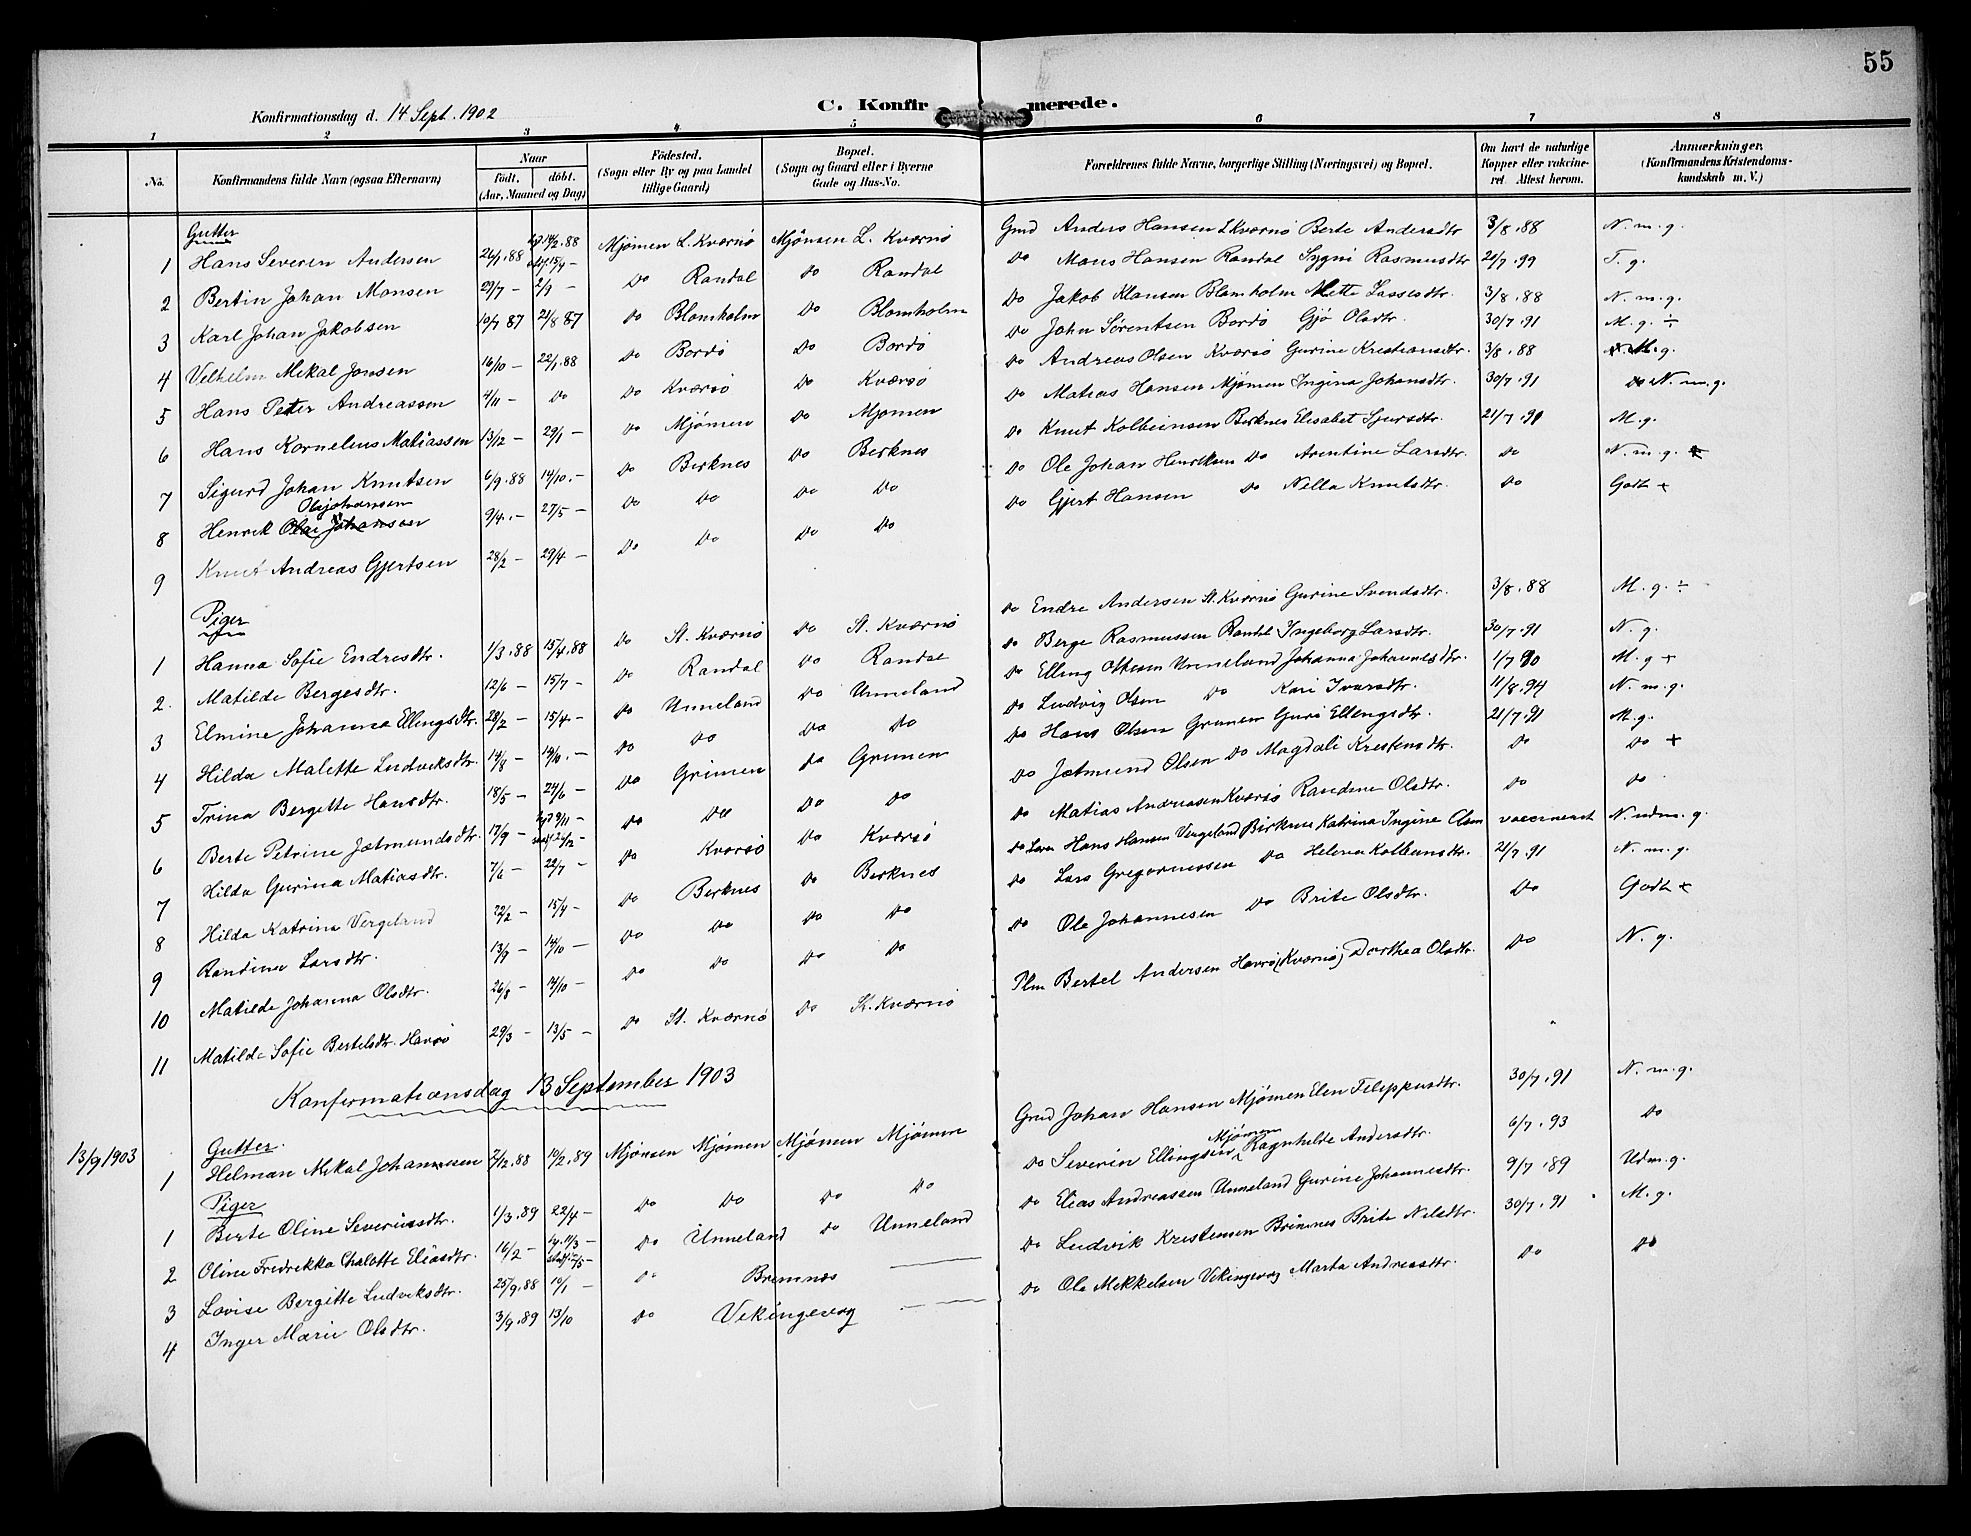 55
C. Konfirmerede.
Konfirmationsdag d. 14 Sept. 1902
1 2 3 4 5 6 7 8
No. Konfirmandens fulde Navn (ogsaa Efternavn) Naar født, døbt. (Aar, Maaned og Dag) Fødested. (Sogn eller By og paa Landet tillige Gaard) Bopæl. (Sogn og Gaard eller i Byerne Gade og Hus-No. Forældrenes fulde Navne, borgerlige Stilling (Næringsvei) og Bopæl. Om havt de naturlige Kopper eller vakcineret. Attest herom. Anmærkninger. (Konfirmandens Kristendomskundskab m. V.)
Gutter
1 Hans Severin Andersen 26/1.88 14/2.88 Mjømen L. Kværnø Mjømen L. Kværnø Gmd Anders Hansen L Kværnø Berte Andersdtr 3/8.88 N. m. g.
2 Bertin Johan Monsen 29/7 – 2/9 – Do Randal Do Randal Do Mons Hansen Randal Sygni Rasmusdtr 20/7.99 T. g.
3 Karl Johan Jakobsen 10/7 87 21/8 87 Do Blomholm Do Blomholm Do Jakob Klausen Blomholm Mette Lassesdtr. 3/8.88 N. m. g.
4 Velhelm Mikal Jonsen 16/10 – 22/1.88 Do Bordø Do Bordø Do John Sørentsen Bordø Gjø Olsdtr. 30/7.91 M. g. ÷
5 Hans Peter Andreassen 4/11 – Do Do Kværsø Do Kværsø Do Andreas Olsen Kværsø Gurine Kristiansdtr. 3/8.88 M. g.
6 Hans Kornelius Matiassen 13/12 – 29/1 – Do Mjømen Do Mjømen Do Matias Hansen Mjømen Ingina Johansdtr. 30/7.91 N. m. g.
7 Sigurd Johan Knutsen 6/9.88 14/10. – Do Berknes Do Berknes Do Knut Kolbeinsen Berknes Elisabet Sjursdtr. 21/7.91 M. g.
Olajohansen
8 Henrik Olai Johansen 9/4. – 27/5 – Do Do Do Do Do Ole Johan Henriksen Do Arentine Larsdtr. Do N. m. g.
9 Knut Andreas Gjertsen 28/2 – 29/4 – Do Do Do Do Do Gjert Hansen Do Nella Knutsdtr. Do Godt +
Piger
1 Hanna Sofie Endresdtr. 1/3.88 15/4.88 Do St. Kværnø Do St. Kværnø Do Endre Andersen St. Kværnø Gurine Svendsdtr. 3/8.88 M. g. ÷
2. Matilde Bergesdtr. 12/6 – 15/7 – Do Randal Do Randal Do Berge Rasmussen Randal Ingeborg Larsdtr. 30/7.91 N. g.
3 Elmine Johanna Ellingsdtr. 28/2 – 15/4 – Do Unneland Do Unneland Do Elling Ottesen Unneland Johanna Johannesdtr. 1/7 90 M. g +
4 Hilda Malette Ludviksdtr. 14/8 – 14/10. – Do Do Do Do Do Ludvig Olsen Do Kari Ivarsdtr. 11/8.94 N. m. g.
5 Trina Bergette Hansdtr. 18/5 – 24/6 – Do Grimen Do Grimen Do Hans Olsen Grimen Guri Ellingsdtr. 21/7.91 M. g.
6 Berte Petrine Jetmundsdtr. 17/9 – 9/11 – Do Do Do Do Do Jetmund Olsen Do Magdali Kristensdtr. Do Do +
7 Hilda Gurina Matiasdtr. 7/6 – 22/7 – Do Kværsø Do Kværsø Do Matias Andreasen Kværsø Randine Olsdtr. Do Do
8 Hilda Katrina Vergeland 22/2 – 15/4 – Do Berknes Do Berknes Do Hans Hansen Vergeland Birknes Katrina Ingine Olsen vaccineret N. udm. g.
9 Randina Larsdtr. 13/9 – 14/10 – Do Do Do Do Do Lars Gregoriussen Do Helena Kolbeinsdtr. 21/7.91 N. m. g.
10 Matilde Johanna Olsdtr. 26/8 – 14/10 – Do Do Do Do Do Ole Johannesen Do Brite Olsdtr. Do Godt +
11 Matilde Sofie Bertelsdtr. Havrø 29/3 – 13/5 – Do St. Kværnø Do St. Kværnø Plm Bertel Andersen Havrø (Kværnø) Dorthea Olsdtr. Do N. g.
Konfermationsdag 13 September 1903
13/9 1903 Gutter.
1 Helman Mikal Johannesen 2/12.88 10/2.89 Mjømen Mjømen Mjømen Mjømen Gmd Johan Hansen Mjømen Elen Filippusdtr. 30/7.91 N. m. g.
Piger
1 Berte Oline Severinsdtr. 1/3.89 22/4 – Do Do Do Do Do Severin Ellingsen Mjømen Ragnhilde Andersdtr. 6/7.93 Do
2 Oline Fredrekka Chalotte Eliasdtr. 16/2 – 11/3 – Do Unneland Do Unneland Do Elias Andreassen Unneland Gurine Johannesdtr. 9/7.89 Udm. g.
3 Lovise Bergitte Ludviksdtr. 25/9.88 10/1 – Do Bremnes Do Ludvik Kristensen Brimnes Brite Nilsdtr. 30/7.91 M. g.
4 Inger Marie Olsdtr. 3/9.89 13/10 Do Vikingevag Do Ole Mekkelsen Vikingevag Marta Andreasdtr. Do Do